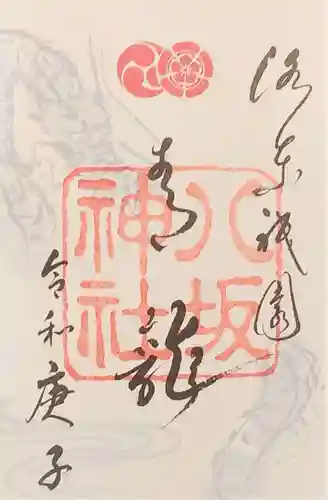 洛東祇園
青龍
八坂
神社
令和庚子